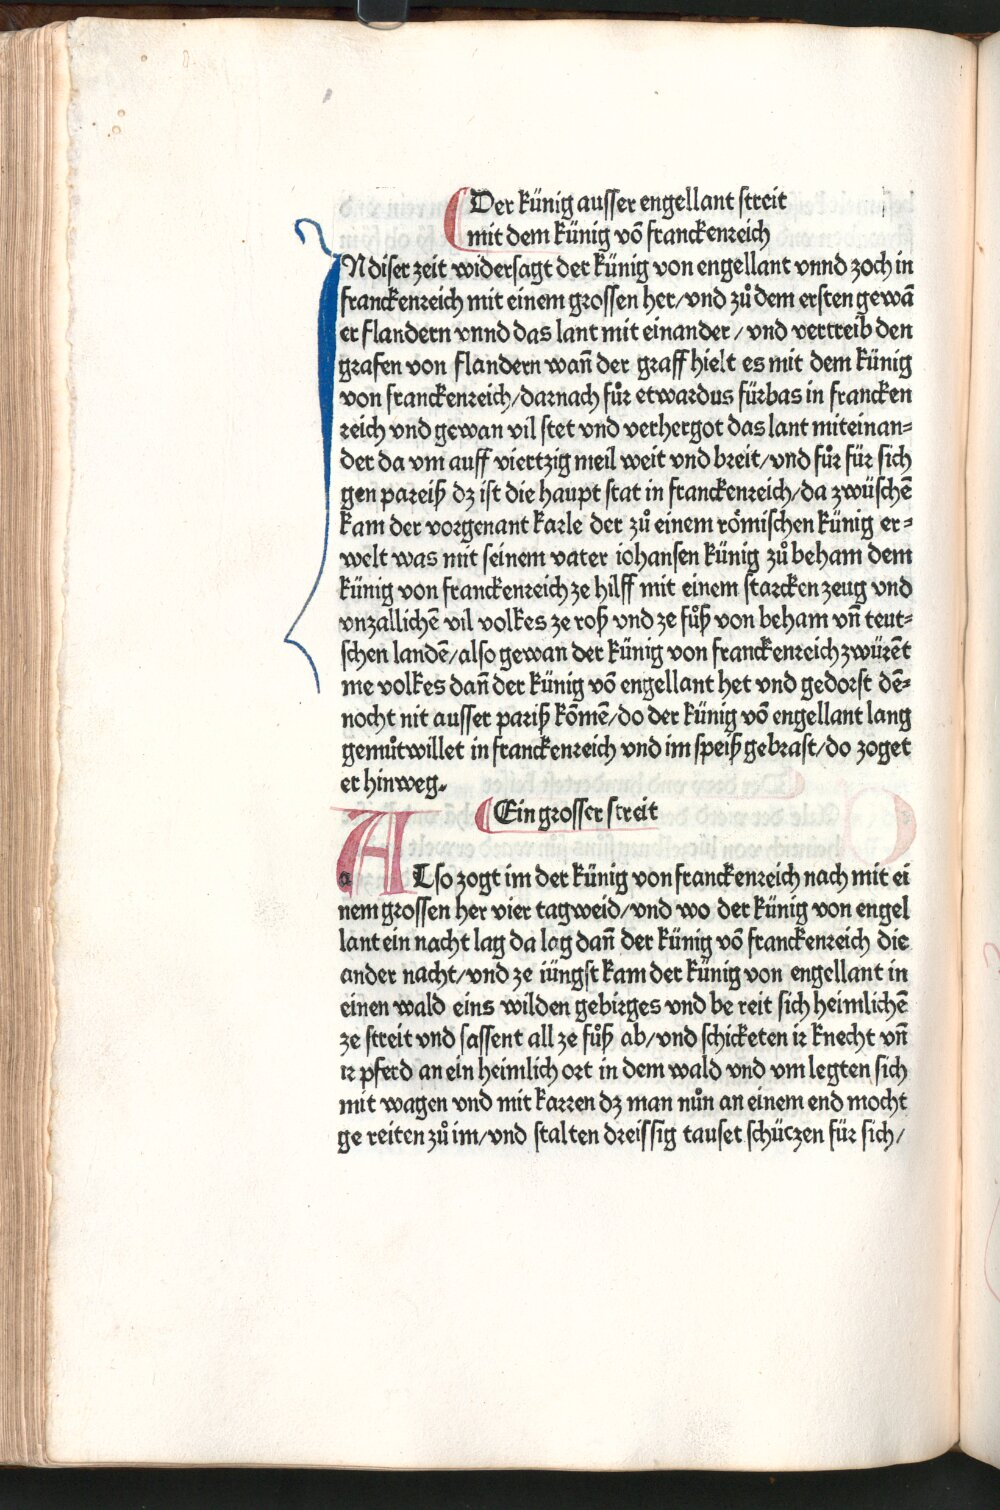 Der künig ausser engellant streit
mit dem künig võ franckenreich
INdiser zeit widersagt der künig von engellant vnnd zoch in
franckenreich mit einem grossen her/vnd zů dem ersten gewã
er flandern vnnd das lant mit einander/vnd vertreib den
grafen von flandern wañ der graff hielt es mit dem künig
von franckenreich/darnach fůr etwardus fürbas in francken
reich vnd gewan vil stet vnd verhergot das lant miteinan⸗
der da vm auff viertzig meil weit vnd breit/vnd fůr für sich
gen pareiß dz ist die haupt stat in franckenreich/da zwüschẽ
kam der vorgenant karle der zů einem römischen künig er⸗
welt was mit seinem vater iohansen künig zů beham dem
künig von franckenreich ze hilff mit einem starcken zeug vnd
vnzallichẽ vil volkes ze roß vnd ze fůß von beham vñ teut⸗
schen landẽ/also gewan der künig von franckenreich zwürẽt
me volkes dañ der künig võ engellant het vnd gedorst dẽ⸗
nocht nit ausser pariß kõmẽ/do der künig võ engellant lang
gemůtwillet in franckenreich vnd im speiß gebrast/do zoget
er hinweg.
Ein grosser streit
ALso zogt im der künig von franckenreich nach mit ei
nem grossen her vier tagweid/vnd wo der künig von engel
lant ein nacht lag da lag dañ der künig võ franckenreich die
ander nacht/vnd ze iüngst kam der künig von engellant in
einen wald eins wilden gebirges vnd be reit sich heimlichẽ
ze streit vnd sassent all ze fůß ab/vnd schicketen ir knecht vñ
ir pferd an ein heimlich ort in dem wald vnd vm legten sich
mit wagen vnd mit karren dz man nůn an einem end mocht
ge reiten zů im/vnd stalten dreissig tauset schüczen für sich/